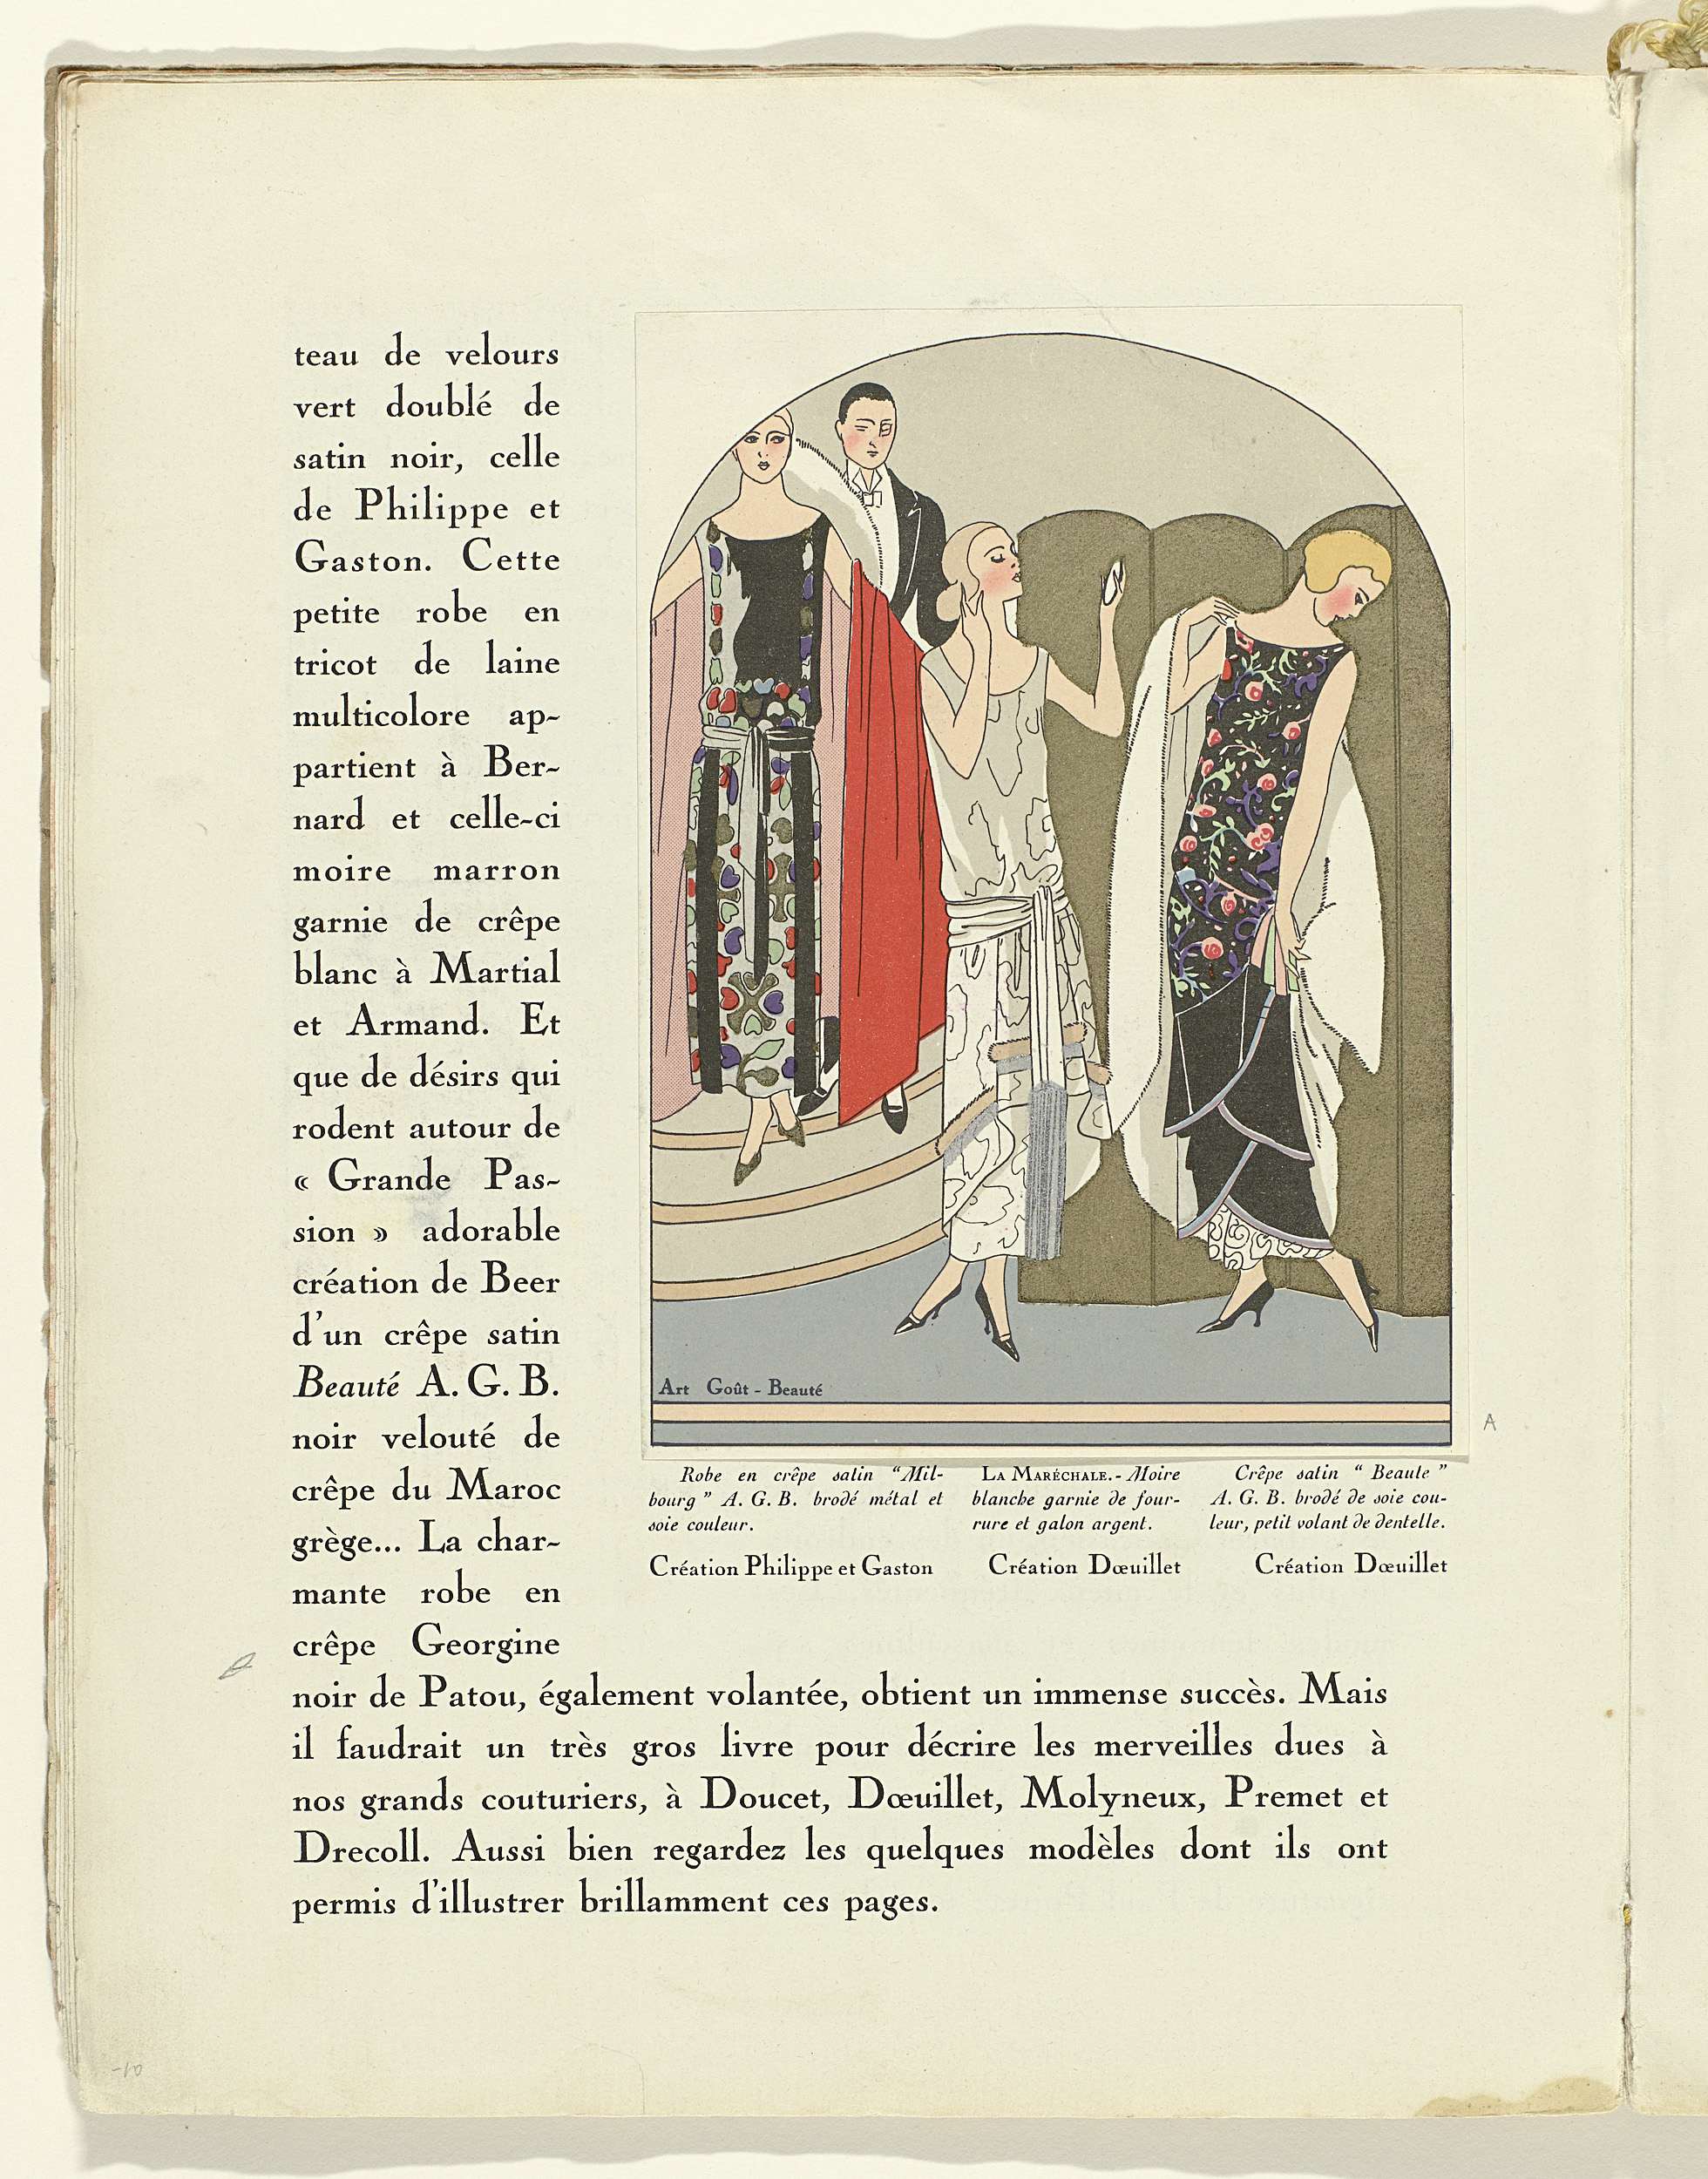 teau de velours
vert doublé de
satin noir, celle
de Philippe et
Gaston. Cette
petite robe en
tricot de laine
multicolore ap-
partient à Ber-
nard et celle-ci
moire marron
garnie de crêpe
blanc à Martial
et Armand. Et
que de désirs qui
rodent autour de
« Grande Pas-
sion » adorable
création de Beer
d'un crêpe satin
Beauté A. G. B.
noir velouté de
crêpe du Maroc
grège... La char-
mante robe en
crêpe Georgine
noir de Patou, également volantée, obtient un immense succès. Mais
il faudrait un très gros livre pour décrire les merveilles dues à
nos grands couturiers, à Doucet, Dœuillet, Molyneux, Premet et
Drecoll. Aussi bien regardez les quelques modèles dont ils ont
permis d'illustrer brillamment ces pages.
Art Goût - Beauté
Robe en crêpe satin “Mil-
bourg” A. G. B. brodé métal et
soie couleur.
Création Philippe et Gaston
LA MARÉCHALE.- Moire
blanche garnie de four-
rure et galon argent.
Création Dœuillet
Crêpe satin “ Beaute ”
A. G. B. brodé de soie cou-
leur, petit volant de dentelle.
Création Dœuillet
A
-10